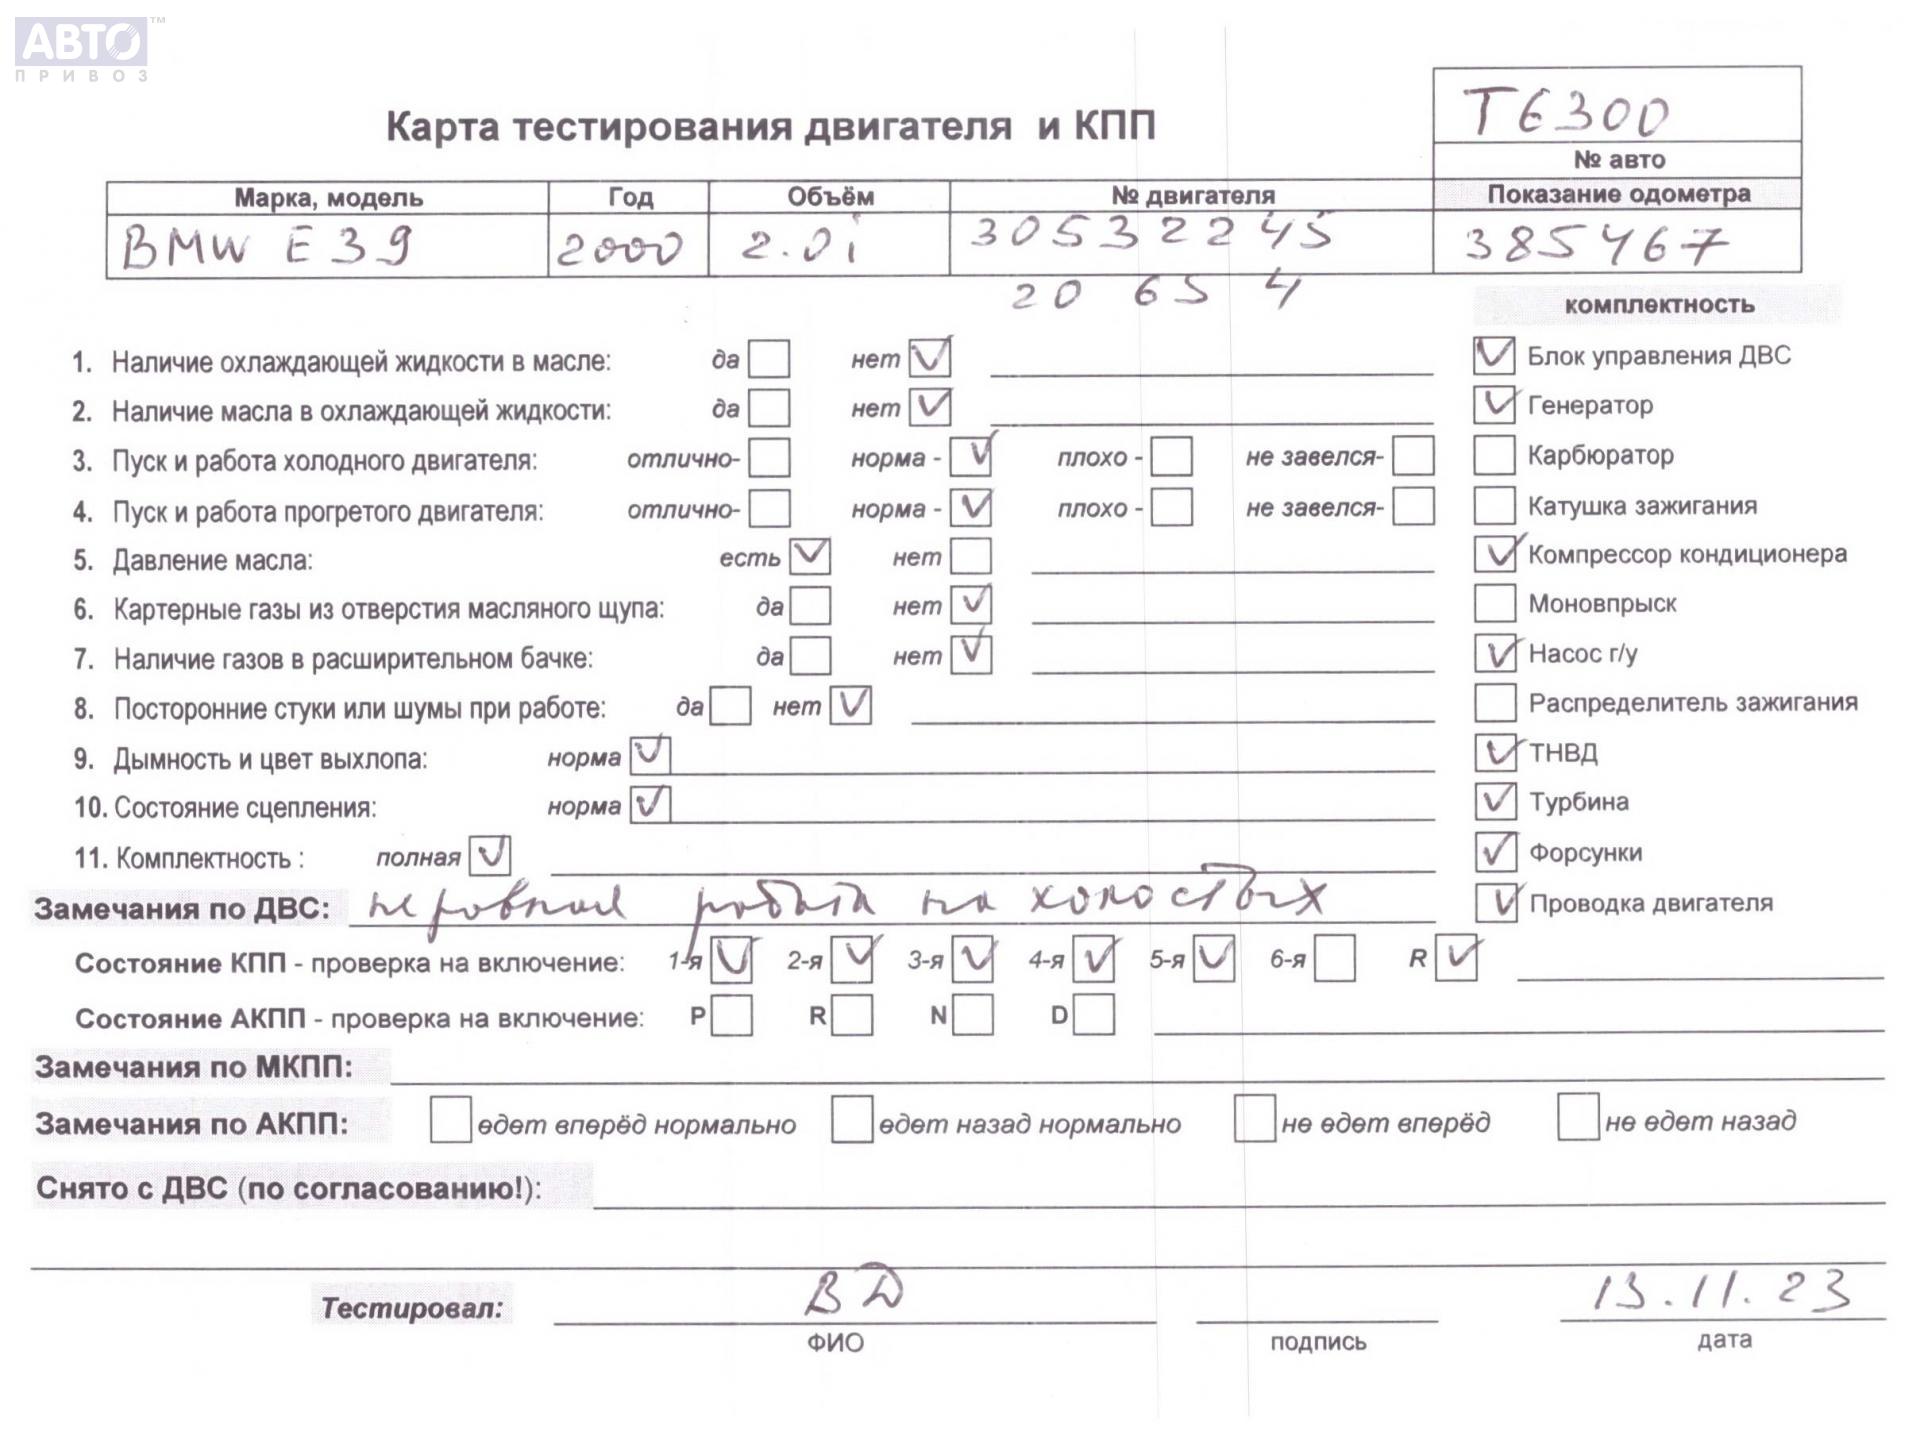 АВТО™
ПРИВОЗ
Т6300
Карта тестирования двигателя и КПП
№ авто
Марка, модель Год Объём № двигателя Показание одометра
BMW E39 2000 2.0i 30532245 385467
20 6S 4
комплектность
1. Наличие охлаждающей жидкости в масле: да нет Блок управления ДВС
2. Наличие масла в охлаждающей жидкости: да нет Генератор
3. Пуск и работа холодного двигателя: отлично- норма - плохо - не завелся- Карбюратор
4. Пуск и работа прогретого двигателя: отлично- норма - плохо - не завелся- Катушка зажигания
5. Давление масла: есть нет Компрессор кондиционера
6. Картерные газы из отверстия масляного щупа: да нет Моновпрыск
7. Наличие газов в расширительном бачке: да нет Насос г/у
8. Посторонние стуки или шумы при работе: да нет Распределитель зажигания
9. Дымность и цвет выхлопа: норма ТНВД
10. Состояние сцепления: норма Турбина
11. Комплектность : полная Форсунки
Замечания по ДВС: неровная работа на холостых Проводка двигателя
Состояние КПП - проверка на включение: 1-я 2-я 3-я 4-я 5-я 6-я R
Состояние АКПП - проверка на включение: P R N D
Замечания по МКПП:
Замечания по АКПП: едет вперёд нормально едет назад нормально не едет вперёд не едет назад
Снято с ДВС (по согласованию!):
Тестировал: ВД 13.11.23
ФИО подпись дата